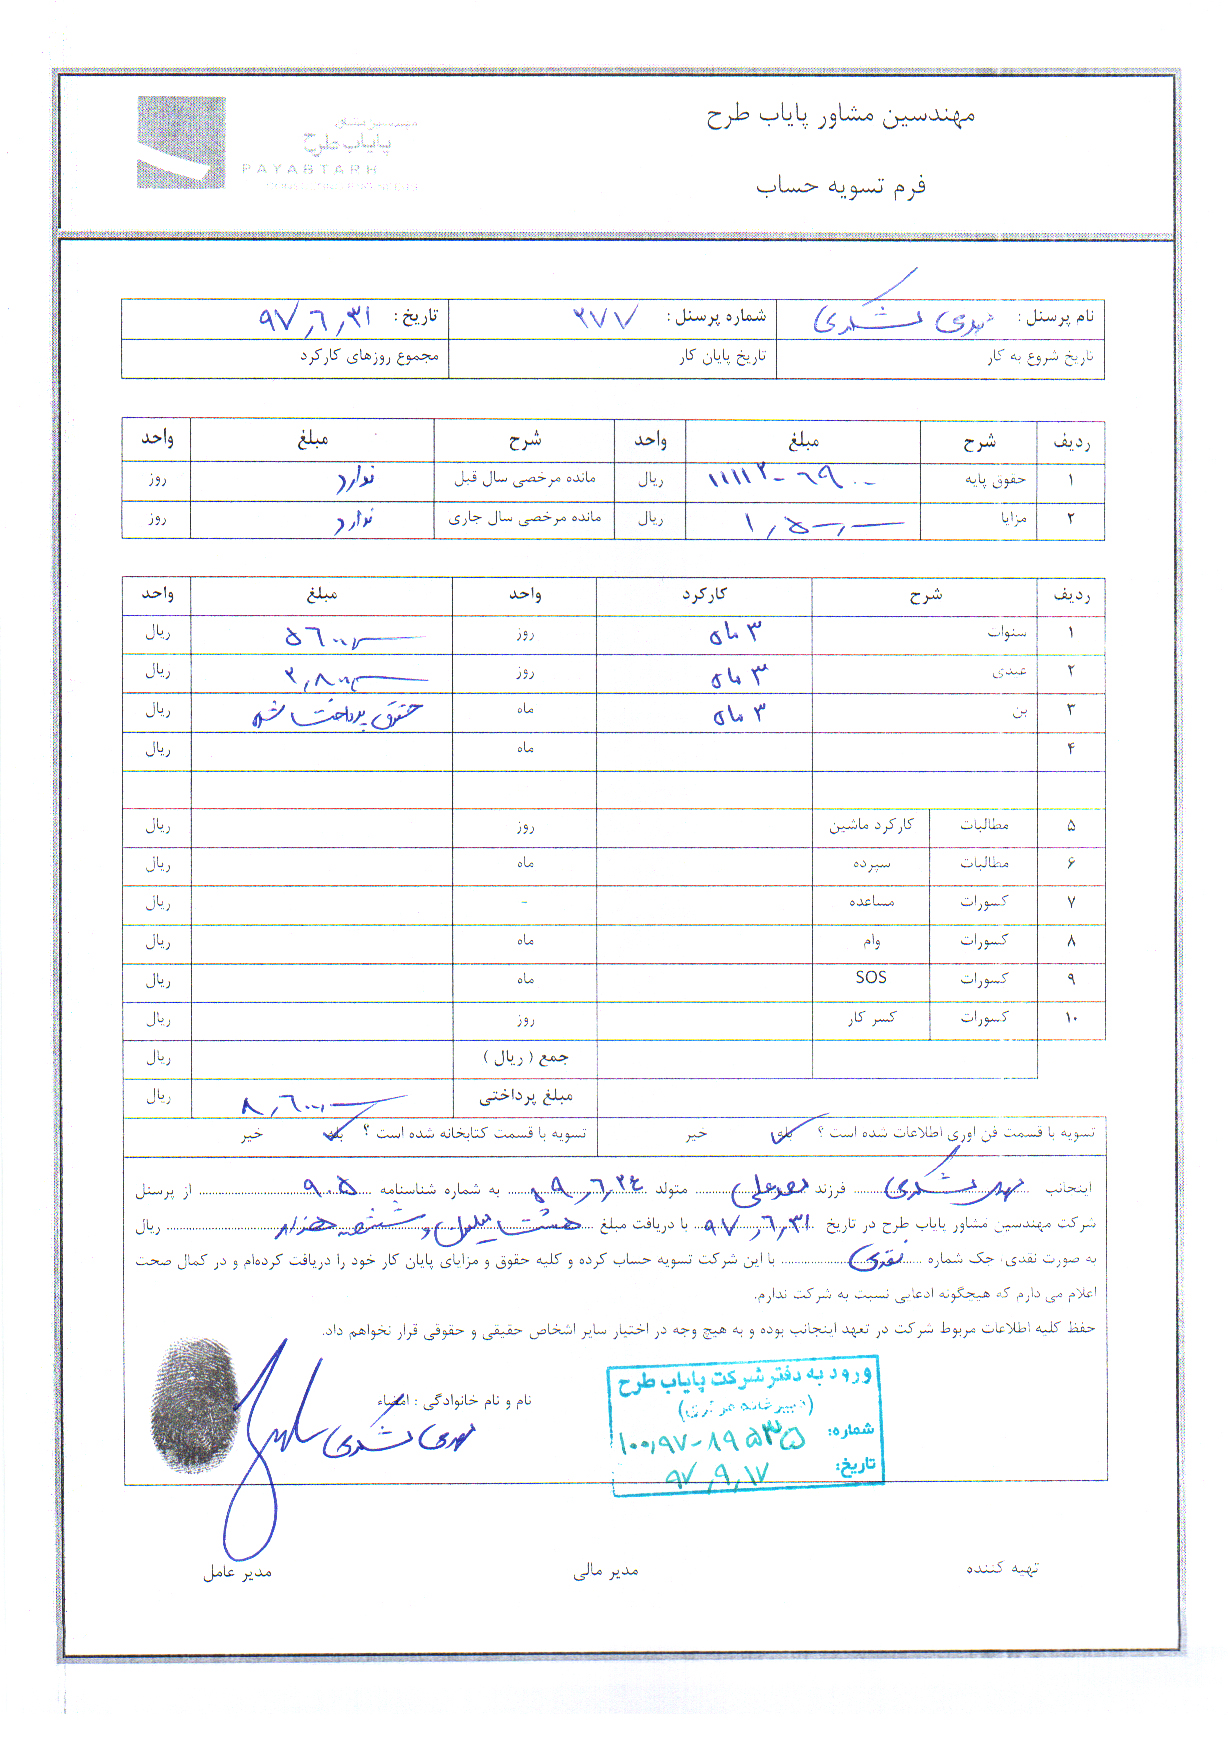 مهندسین مشاور پایاب طرح
پایاب طرح
PAYABTARH
فرم تسویه حساب
نام پرسنل : مهدی لشکری شماره پرسنل : ۲۷۷ تاریخ : ۹۷,۶,۳۱
تاریخ شروع به کار تاریخ پایان کار مجموع روزهای کارکرد
ردیف شرح مبلغ واحد شرح مبلغ واحد
۱ حقوق پایه ریال مانده مرخصی سال قبل ندارد روز
۲ مزایا ریال مانده مرخصی سال جاری ندارد روز
ردیف شرح کارکرد واحد مبلغ واحد
۱ سنوات ۳ ماه روز ریال
۲ عیدی ۳ ماه روز ریال
۳ بن ۳ ماه ماه حقوق پرداخت شد ریال
۴ ماه ریال
۵ مطالبات کارکرد ماشین روز ریال
۶ مطالبات سپرده ماه ریال
۷ کسورات مساعده - ریال
۸ کسورات وام ماه ریال
۹ کسورات SOS ماه ریال
۱۰ کسورات کسر کار روز ریال
جمع ( ریال ) ریال
مبلغ پرداختی ریال
تسویه با قسمت فن اوری اطلاعات شده است ؟ بله خیر تسویه با قسمت کتابخانه شده است ؟ بله خیر
اینجانب مهدی لشکری فرزند متولد ۵۹,۶,۲۴ به شماره شناسنامه ۹۰۵ از پرسنل
شرکت مهندسین مشاور پایاب طرح در تاریخ ۹۷,۶,۳۱ با دریافت مبلغ هشت میلیون و ششصد هزار ریال
به صورت نقدی، چک شماره نقدی با این شرکت تسویه حساب کرده و کلیه حقوق و مزایای پایان کار خود را دریافت کرده‌ام و در کمال صحت
اعلام می دارم که هیچگونه ادعایی نسبت به شرکت ندارم.
حفظ کلیه اطلاعات مربوط شرکت در تعهد اینجانب بوده و به هیچ وجه در اختیار سایر اشخاص حقیقی و حقوقی قرار نخواهم داد.
نام و نام خانوادگی : امضاء
مهدی لشکری
ورود به دفتر شرکت پایاب طرح
(دبیرخانه مرکزی)
شماره: ۱۰۰,۹۷-۸۹۵۳۵
تاریخ: ۹۷,۹,۱۷
تهیه کننده مدیر مالی مدیر عامل